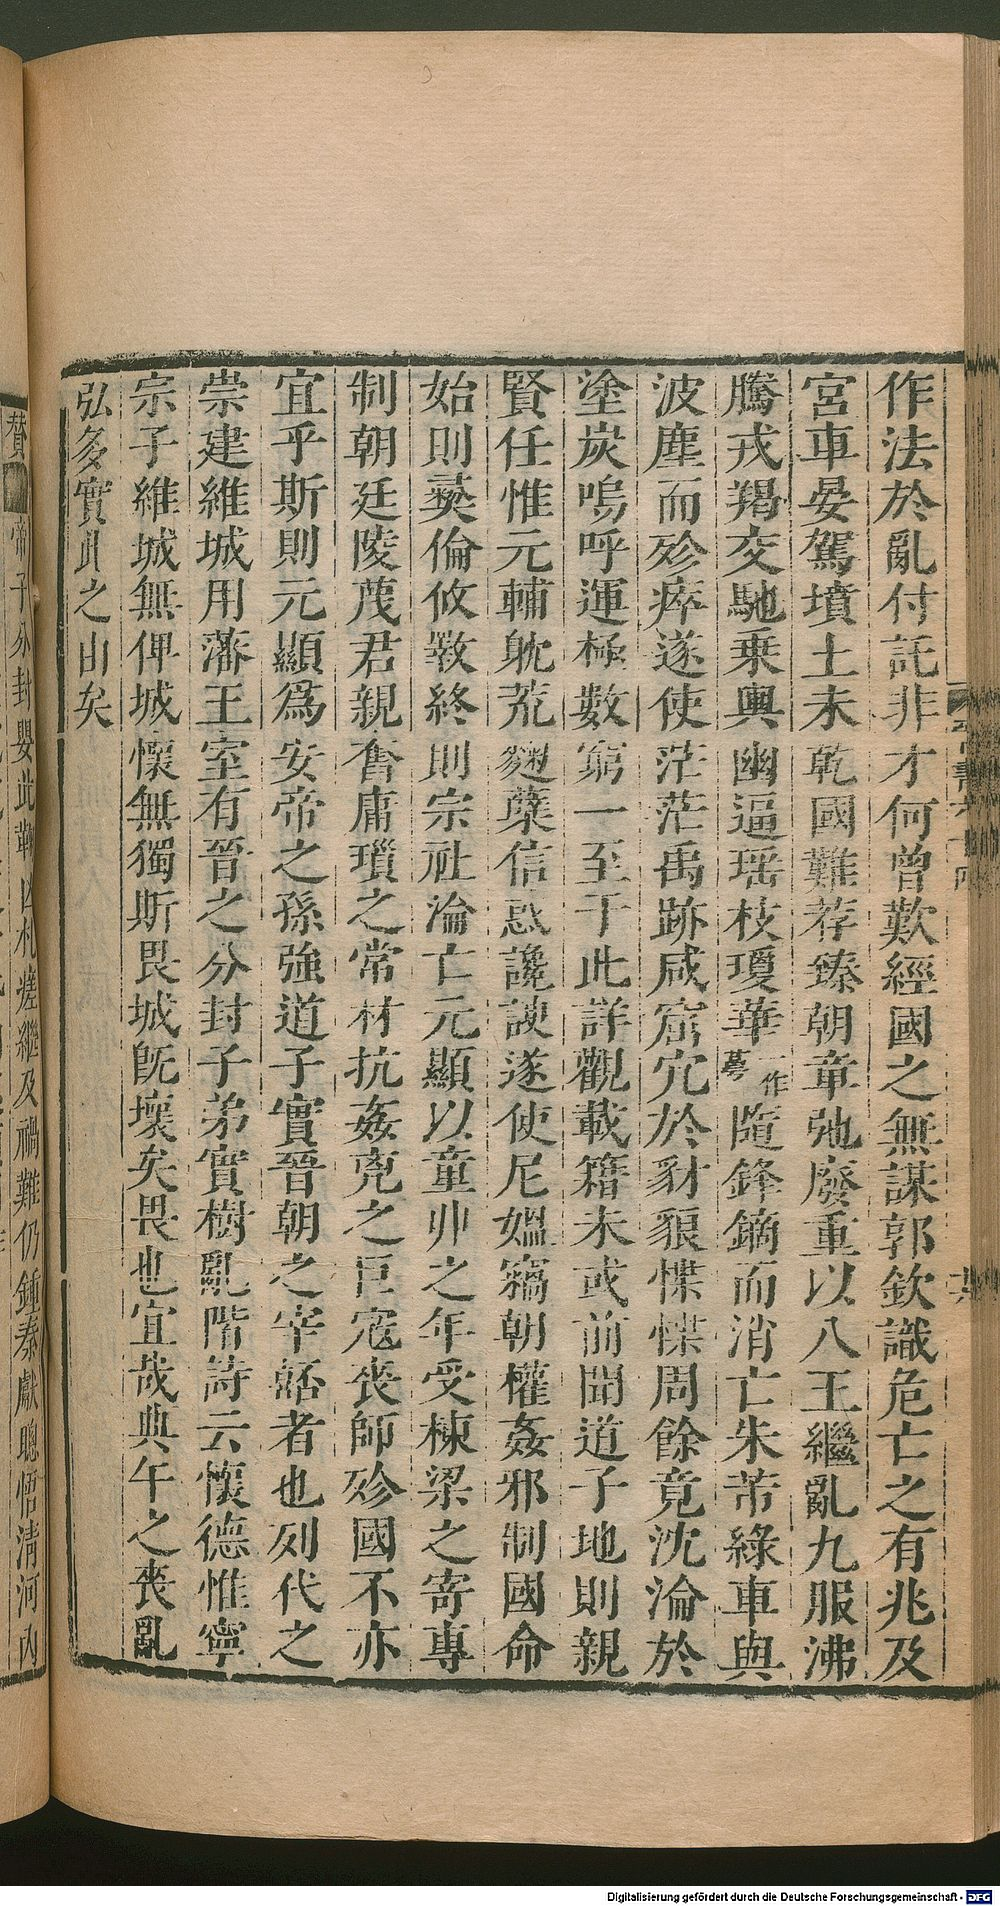 作法於亂付託非才何曾歎經國之無謀郭欽識危亡之有兆及
宮車晏駕墳土未乾國難荐臻朝章弛廢重以八王繼亂九服沸
騰戎羯交馳乘輿幽逼瑶枝瓊華一作萼隨鋒鏑而消亡朱芾綠車與
波塵而殄瘁遂使茫茫禹跡咸窟穴於豺狼惵惵周餘竟沈淪於
塗炭嗚呼運極數窮一至于此詳觀載籍未或前聞道子地則親
賢任惟元輔躭荒麴蘖信惑讒諛遂使尼媼竊朝權姦邪制國命
始則彝倫攸斁終則宗社淪亡元顯以童丱之年受棟梁之寄專
制朝廷陵蔑君親奮庸瑣之常材抗姦兇之巨寇喪師殄國不亦
宜乎斯則元顯爲安帝之孫強道子實晉朝之宰嚭者也列代之
崇建維城用藩王室有晉之分封子弟實樹亂階詩云懷德惟寧
宗子維城無俾城懷無獨斯畏城旣壞矣畏也宜哉典午之喪亂
弘多實此之由矣
贊
帝子分封嬰此鞠凶札瘥繼及禍難仍鍾秦獻聰悟清河內
Digitalisierung gefördert durch die Deutsche Forschungsgemeinschaft - DFG